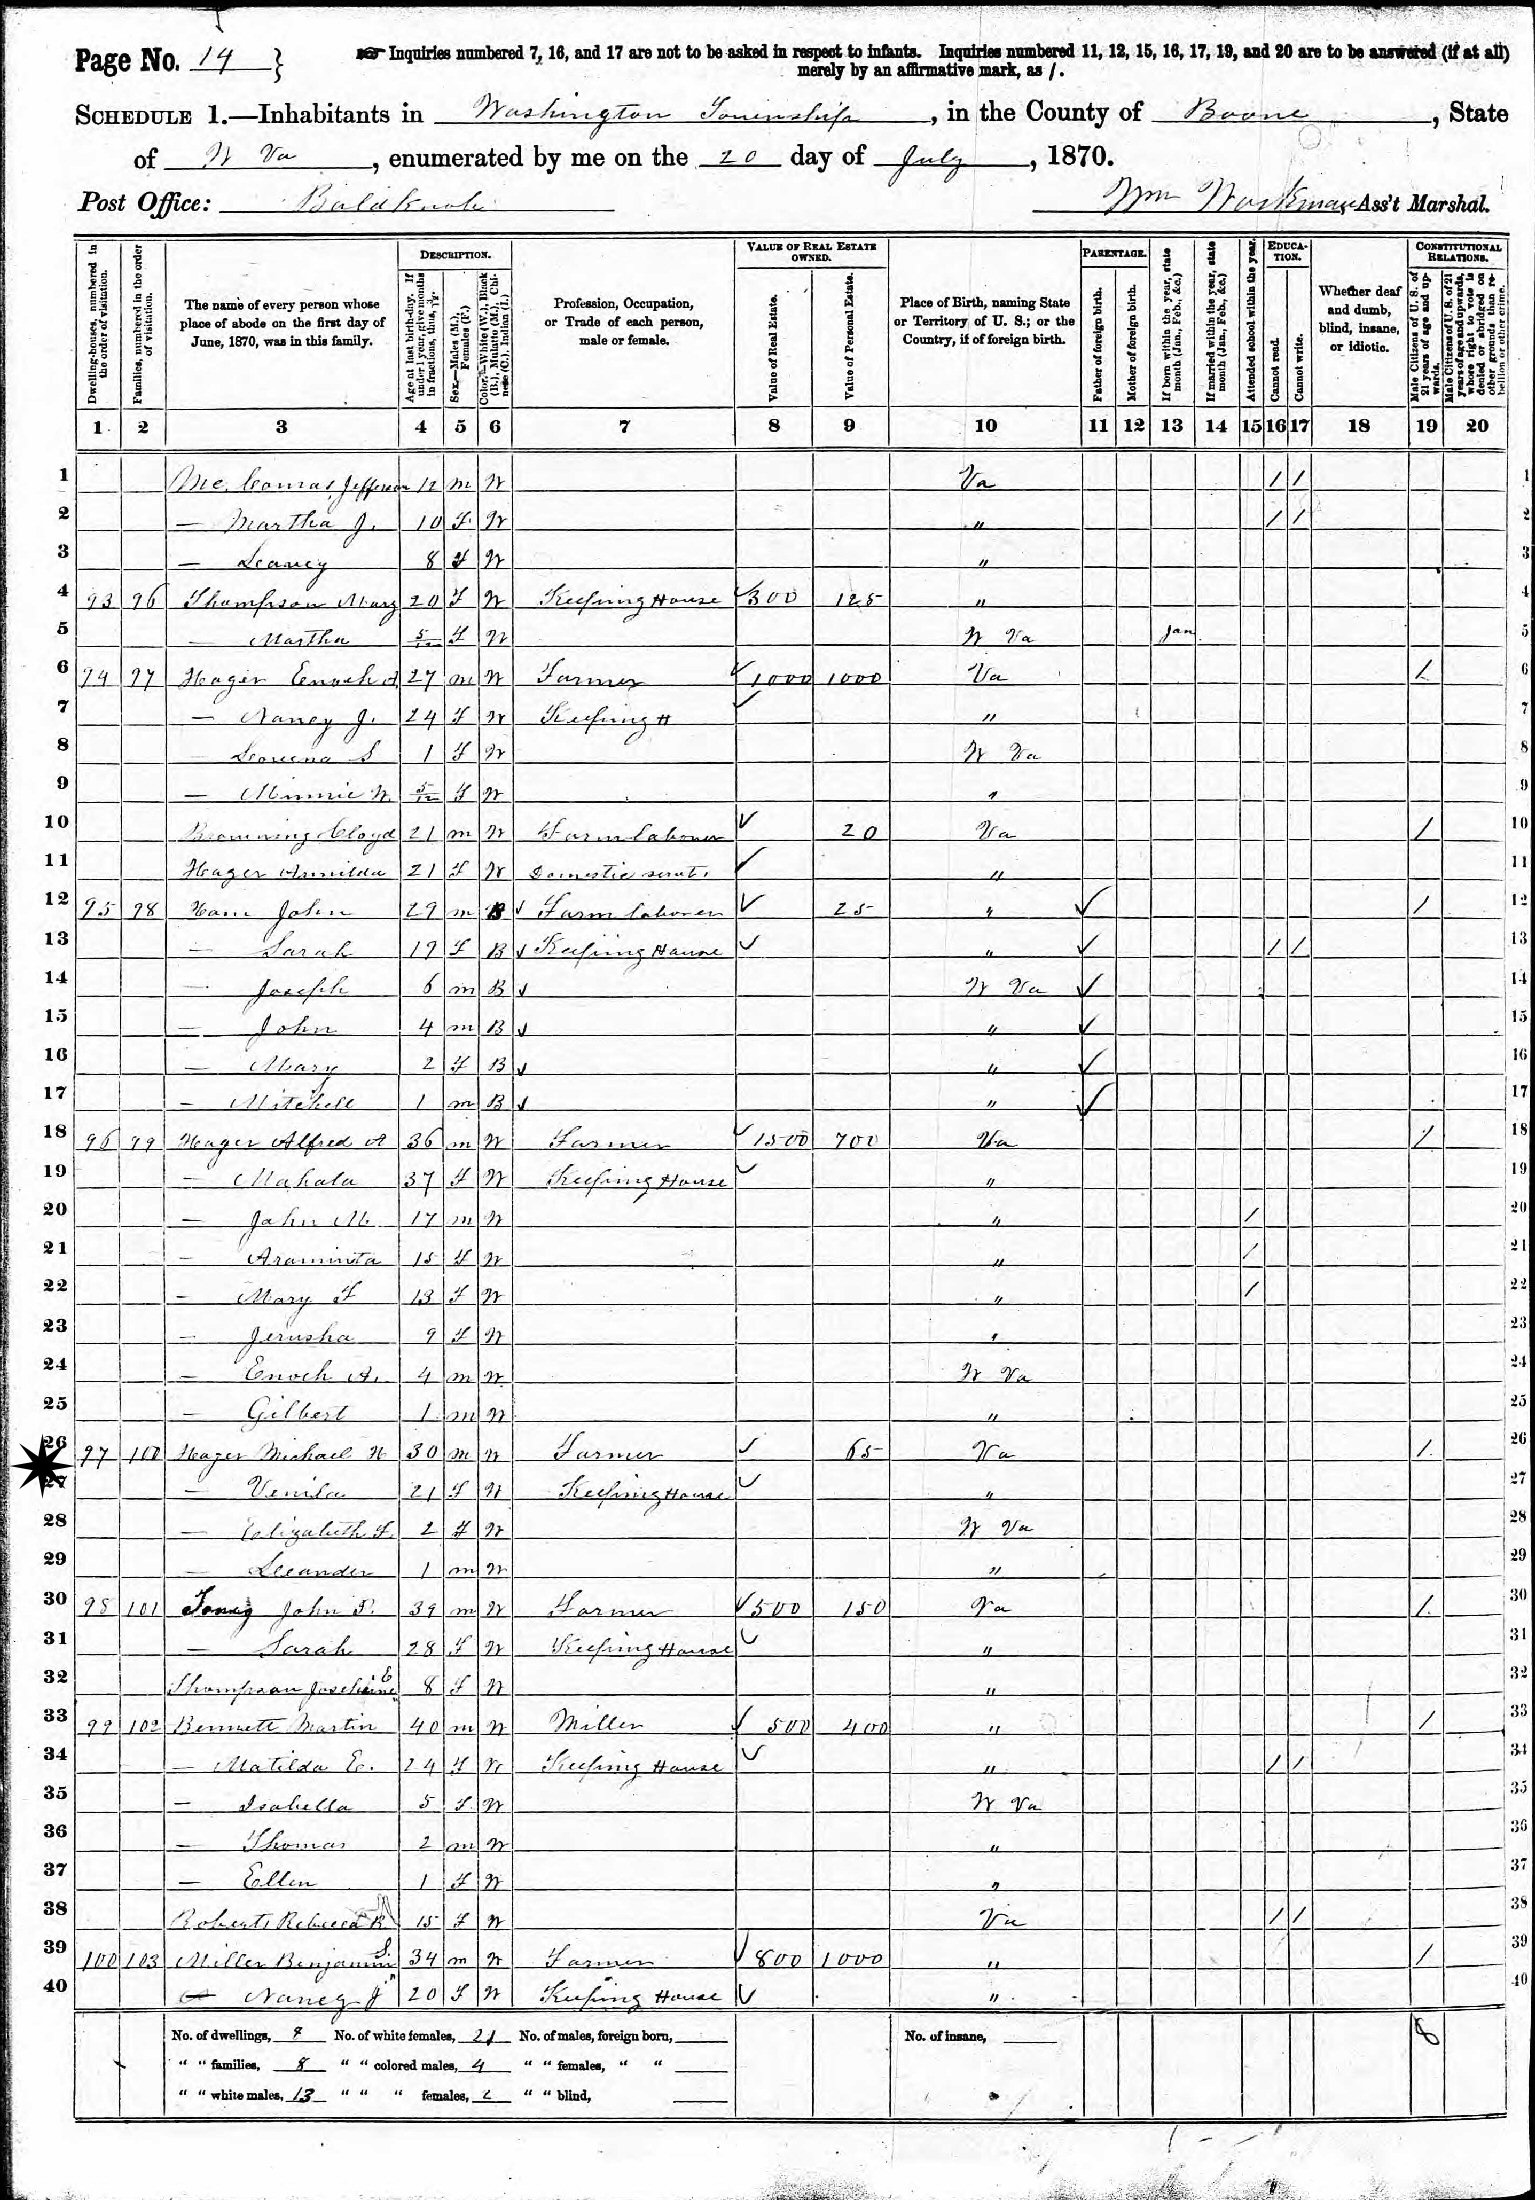 Page No. 14 }
☞ Inquiries numbered 7, 16, and 17 are not to be asked in respect to infants. Inquiries numbered 11, 12, 15, 16, 17, 19, and 20 are to be answered (if at all)
merely by an affirmative mark, as /.
SCHEDULE 1.—Inhabitants in Washington Township, in the County of Boone, State
of W Va, enumerated by me on the 20 day of July, 1870.
Post Office: Bald Knob Wm Workman, Ass't Marshal.
DESCRIPTION. VALUE OF REAL ESTATE OWNED. PARENTAGE. EDUCATION. CONSTITUTIONAL RELATIONS.
Dwelling-houses, numbered in the order of visitation.
Families, numbered in the order of visitation.
The name of every person whose place of abode on the first day of June, 1870, was in this family.
Age at last birth-day. If under 1 year, give months in fractions, thus, 3/12.
Sex.—Males (M.), Females (F.)
Color.—White (W.), Black (B.), Mulatto (M.), Chinese (C.), Indian (I.)
Profession, Occupation, or Trade of each person, male or female.
Value of Real Estate.
Value of Personal Estate.
Place of Birth, naming State or Territory of U. S.; or the Country, if of foreign birth.
Father of foreign birth.
Mother of foreign birth.
If born within the year, state month (Jan., Feb., &c.)
If married within the year, state month (Jan., Feb., &c.)
Attended school within the year.
Cannot read.
Cannot write.
Whether deaf and dumb, blind, insane, or idiotic.
Male Citizens of U. S. of 21 years of age and upwards.
Male Citizens of U. S. of 21 years of age and upwards, whose right to vote is denied or abridged on other grounds than rebellion or other crime.
1 2 3 4 5 6 7 8 9 10 11 12 13 14 15 16 17 18 19 20
1 Mc Comas Jefferson 12 m W Va / / 1
2 — Martha J. 10 F. W " / / 2
3 — 8 F W " 3
4 93 96 Thompson Mary 20 F W Keeping House ✓ 300 125 " 4
5 — Martha 5/12 F W W Va Jan 5
6 94 97 Hager Enoch A 27 m W Farmer ✓ 1000 1000 Va / 6
7 — Nancy J. 24 F W Keeping H ✓ " 7
8 — S 1 F W W Va 8
9 — Minnie W. 5/12 F W " 9
10 Browning Cloyd 21 m W Farm laborer ✓ 20 Va / 10
11 Hager Armilda 21 F W Domestic servt. ✓ " 11
12 95 98 Ham John 29 m B ✓ Farm laborer ✓ 25 " ✓ / 12
13 — Sarah 19 F B ✓ Keeping House ✓ " ✓ / / 13
14 — Joseph 6 m B ✓ W Va ✓ 14
15 — John 4 m B ✓ " ✓ 15
16 — Mary 2 F B ✓ " ✓ 16
17 — Mitchell 1 m B ✓ " ✓ 17
18 96 99 Hager Alfred A 36 m W Farmer ✓ 1500 700 Va / 18
19 — Mahala 37 F W Keeping House ✓ " 19
20 — John M. 17 m W " / 20
21 — Araminta 15 F W " / 21
22 — Mary F 13 F W " / 22
23 — Jerusha 9 F W " 23
24 — Enoch A. 4 m W. W Va 24
25 — Gilbert 1 m W " 25
26 97 100 Hager Michael W 30 m W Farmer ✓ 65 Va / 26
27 — Venila 21 F W Keeping House ✓ " 27
28 — Elizabeth F. 2 F W W Va 28
29 — Leeander 1 m W " 29
30 98 101 Toney John P. 39 m W Farmer ✓ 500 150 Va / 30
31 — Sarah 28 F W Keeping House ✓ " 31
32 Thompson Josephine E 8 F W " 32
33 99 102 Bennett Martin 40 m W Miller ✓ 500 400 " / 33
34 — Matilda E. 24 F W Keeping House ✓ " / / 34
35 — Isabella 5 F. W W Va 35
36 — Thomas 2 m W " 36
37 — Ellen 1 F W " 37
38 Roberts Rebecca R 15 F W Va / / 38
39 100 103 Miller Benjamin S. 34 m W Farmer ✓ 800 1000 " / 39
40 — Nancy J 20 F W Keeping House ✓ " 40
No. of dwellings, 8 No. of white females, 21 No. of males, foreign born, No. of insane, 8
" " families, 8 " " colored males, 4 " " females, " "
" " white males, 13 " " " females, 2 " " blind,